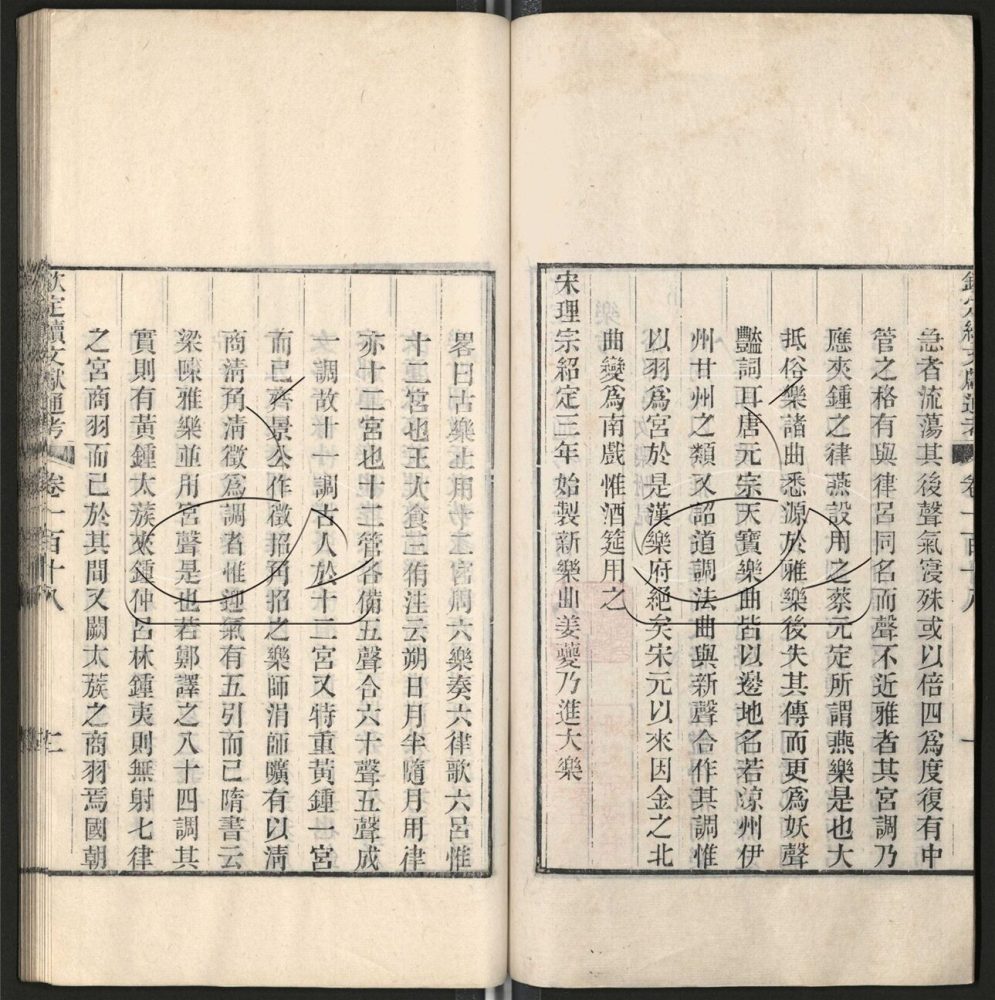 急者流蕩其後聲氣寖殊或以倍四爲度復有中
管之格有與律呂同名而聲不近雅者其宮調乃
應夾鍾之律燕設用之蔡元定所謂燕樂是也大
抵俗樂諸曲悉源於雅樂後失其傳而更爲妖聲
豔詞耳唐元宗天寶樂曲皆以邊地名若涼州伊
州甘州之類又詔道調法曲與新聲合作其調惟
以羽爲宮於是漢樂府絕矣宋元以來因金之北
曲變爲南戲惟酒筵用之
宋理宗紹定三年始製新樂曲姜夔乃進大樂
畧曰古樂止用十二宮周六樂奏六律歌六呂惟
十二宮也王大食三侑注云朔日月半隨月用律
亦十二宮也十二管各備五聲合六十聲五聲成
一調故十一調古人於十二宮又特重黃鍾一宮
而已齊景公作徵招角招之樂師涓師曠有以清
商清角清徵爲調者惟迎氣有五引而已隋書云
梁陳雅樂並用宮聲是也若鄭譯之八十四調其
實則有黃鍾太蔟夾鍾仲呂林鍾夷則無射七律
之宮商羽而已於其間又闕太蔟之商羽焉國朝
欽定續文獻通考 卷一百十八 二